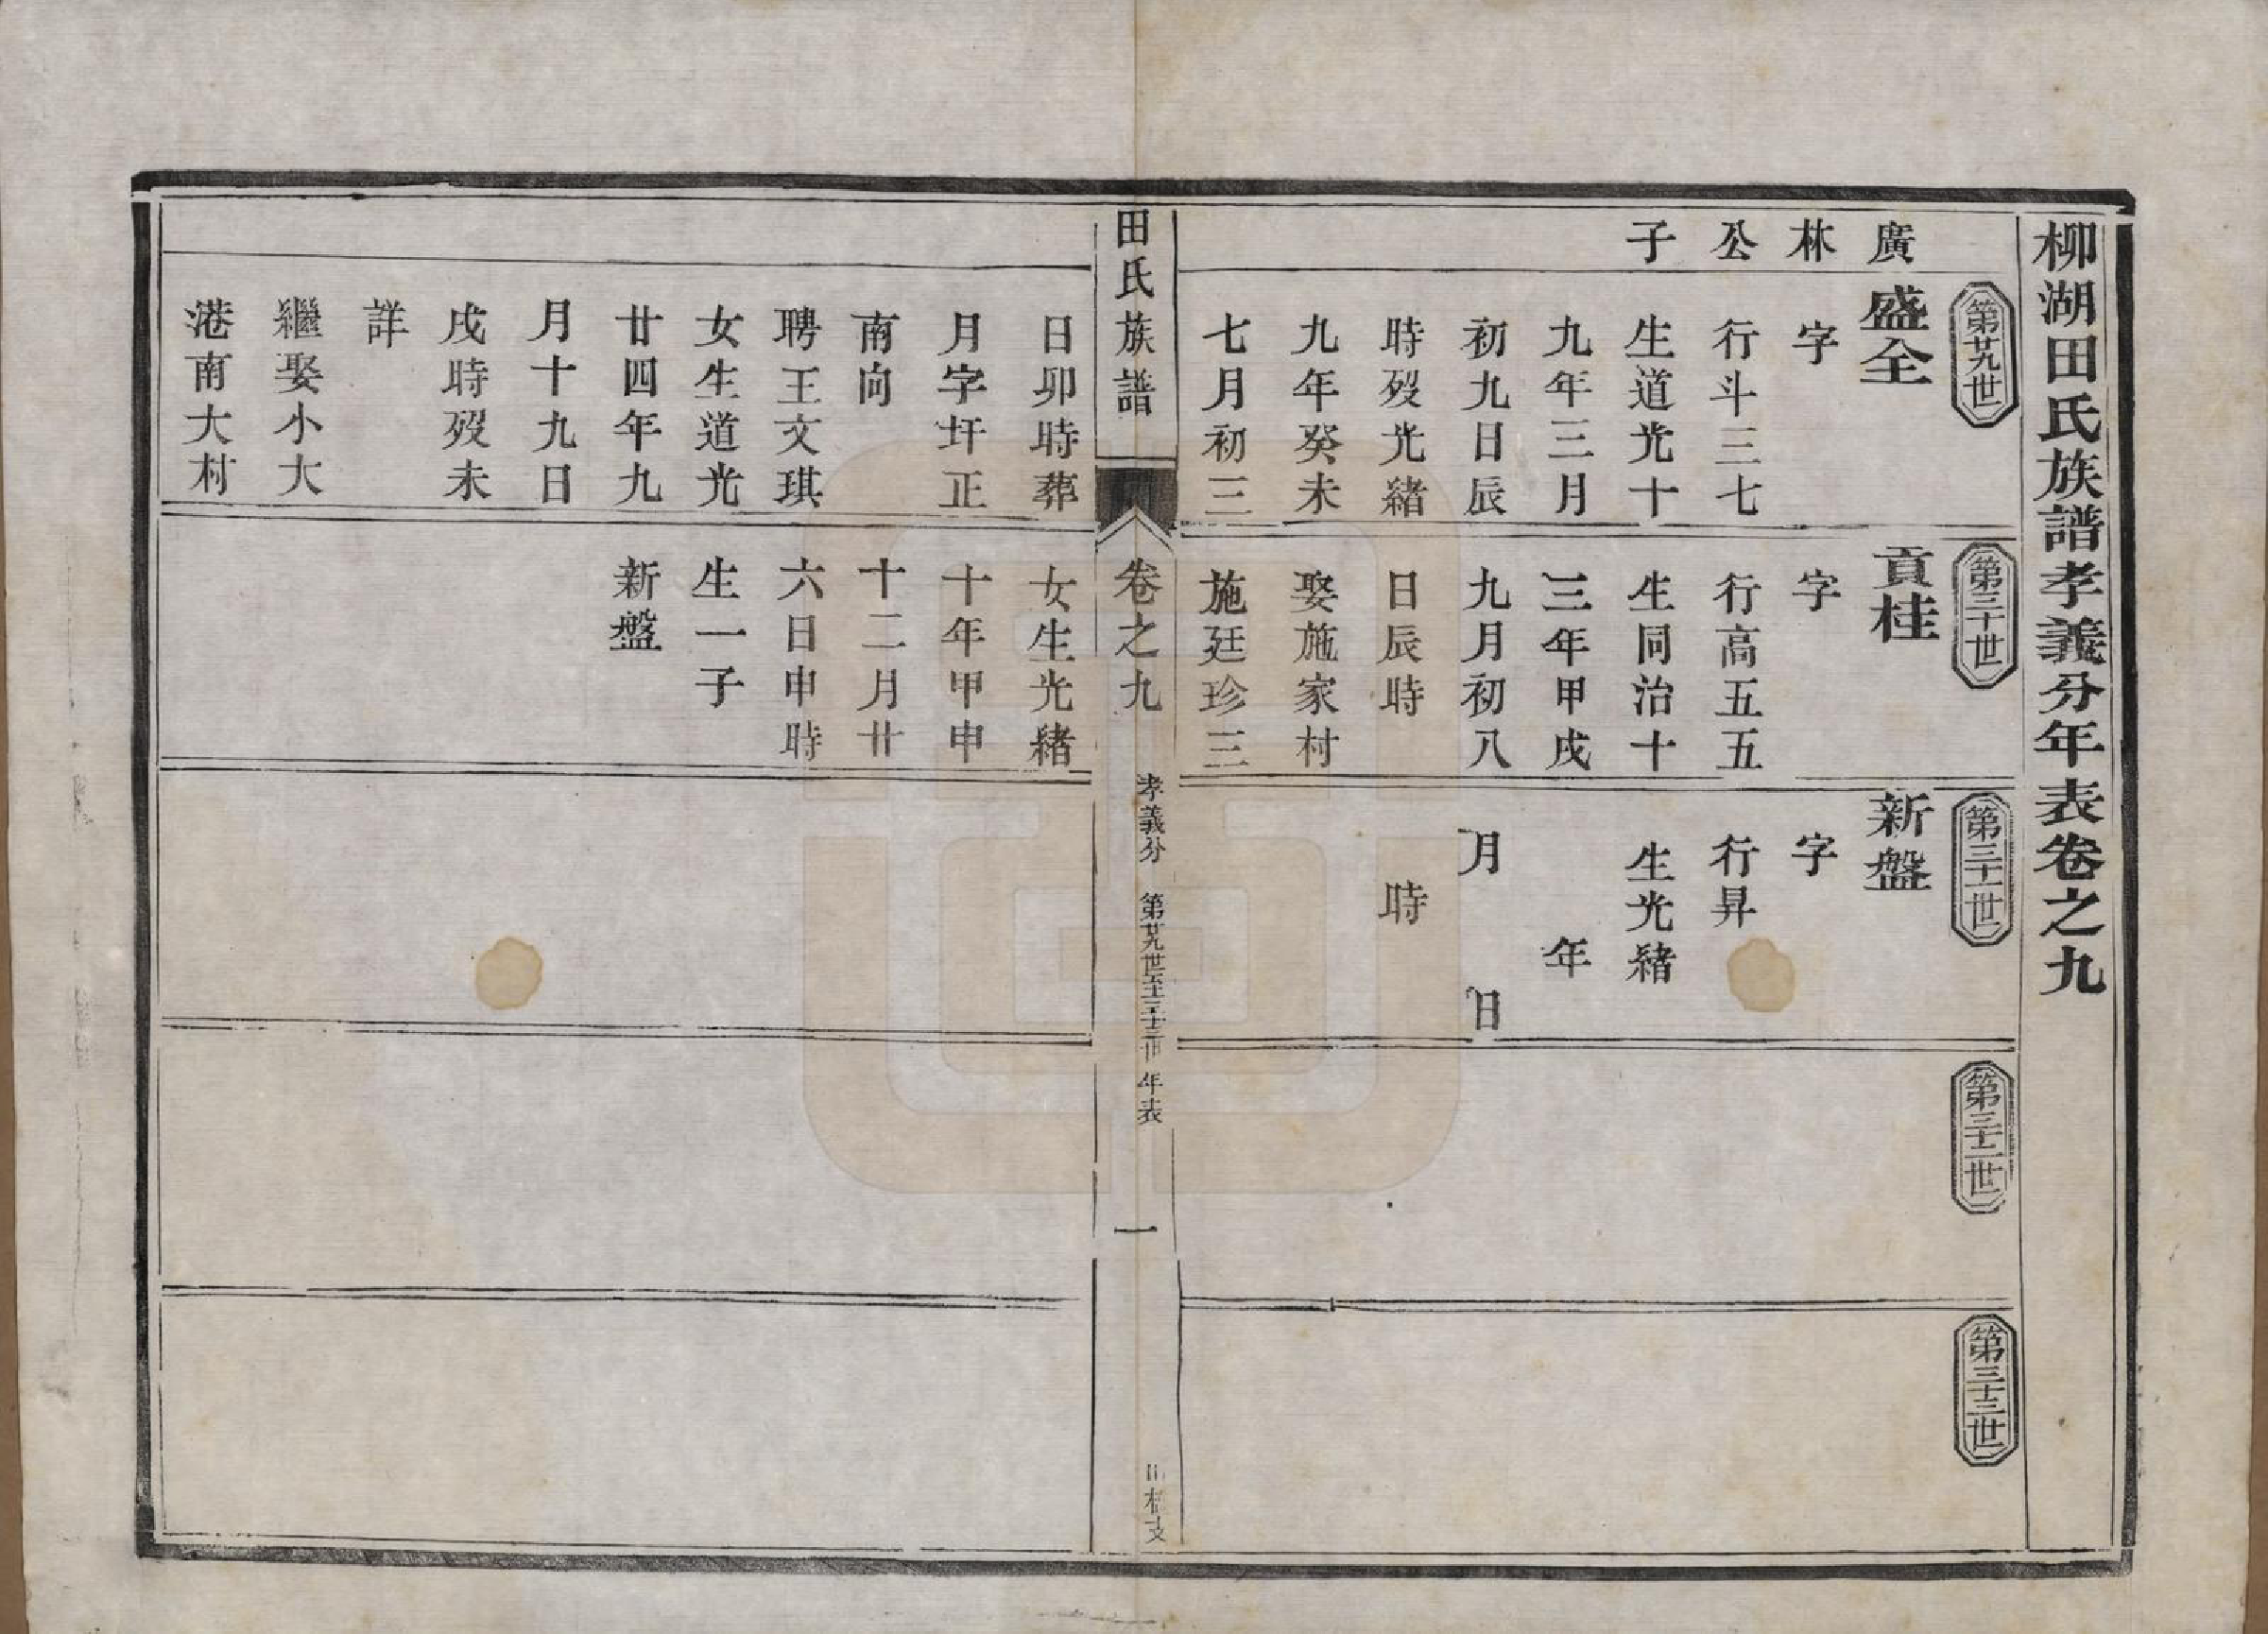 柳湖田氏族譜孝義分年表卷之九
廣
林
公
子
第廿九世
盛全
字
行斗三七
生道光十
九年三月
初九日辰
時歿光緒
九年癸未
七月初三
日卯時葬
月字圩正
南向
聘王文琪
女生道光
廿四年九
月十九日
戌時歿未
詳
繼娶小大
港南大村
第三十世
貢桂
字
行高五五
生同治十
三年甲戌
九月初八
日辰時
娶施家村
施廷珍三
女生光緒
十年甲申
十二月廿
六日申時
生一子
新盤
第三十一世
新盤
字
行昇
生光緒
年
月 日
時
第三十二世
第三十三世
田氏族譜
卷之九
孝義分 第廿九世至三十三世 年表
一